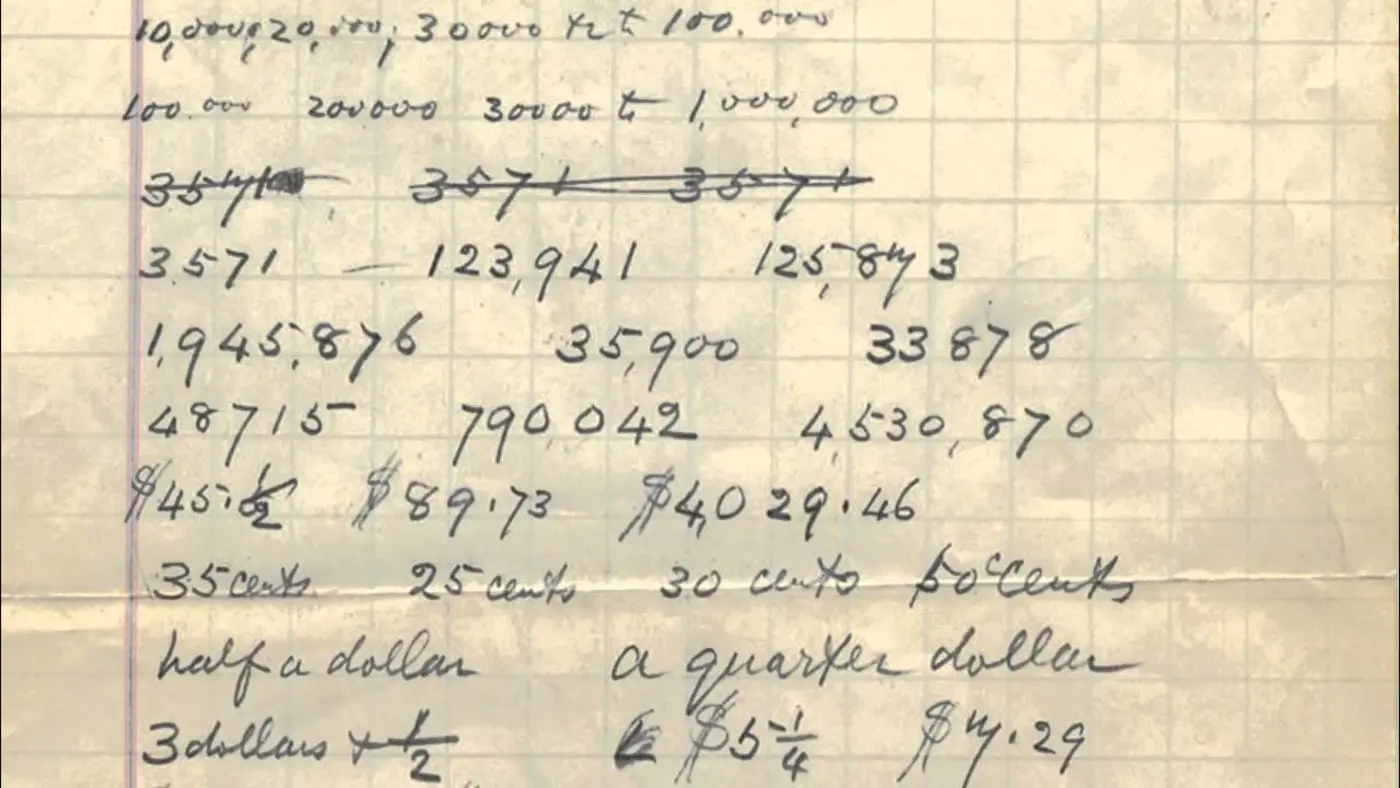 10,000, 20,000, 30000 to 100.000
100.000 200000 30000 to 1,000,000
3571 3571 3571
3571 — 123,941 125,873
1,945,876 35,900 33878
48715 790,042 4,530,870
$45.½ $89.73 $4,029.46
35 cents 25 cents 30 cents 50 cents
half a dollar a quarter dollar
3 dollars + ½ $5¼ $7.29